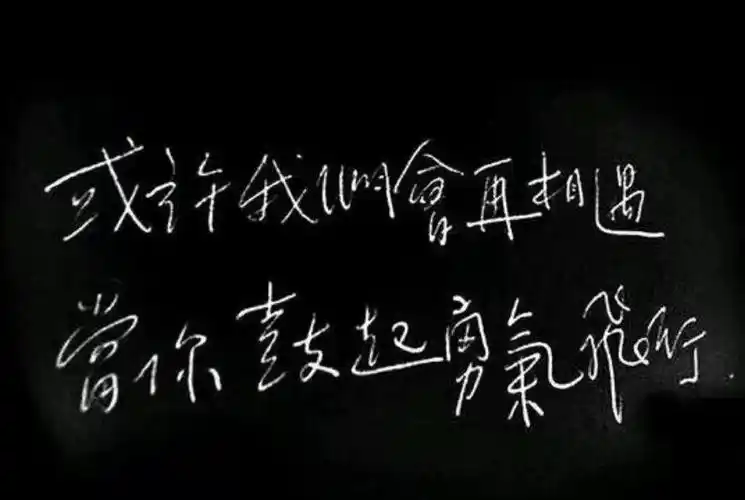 或許我們會再相遇
當你鼓起勇氣飛行.